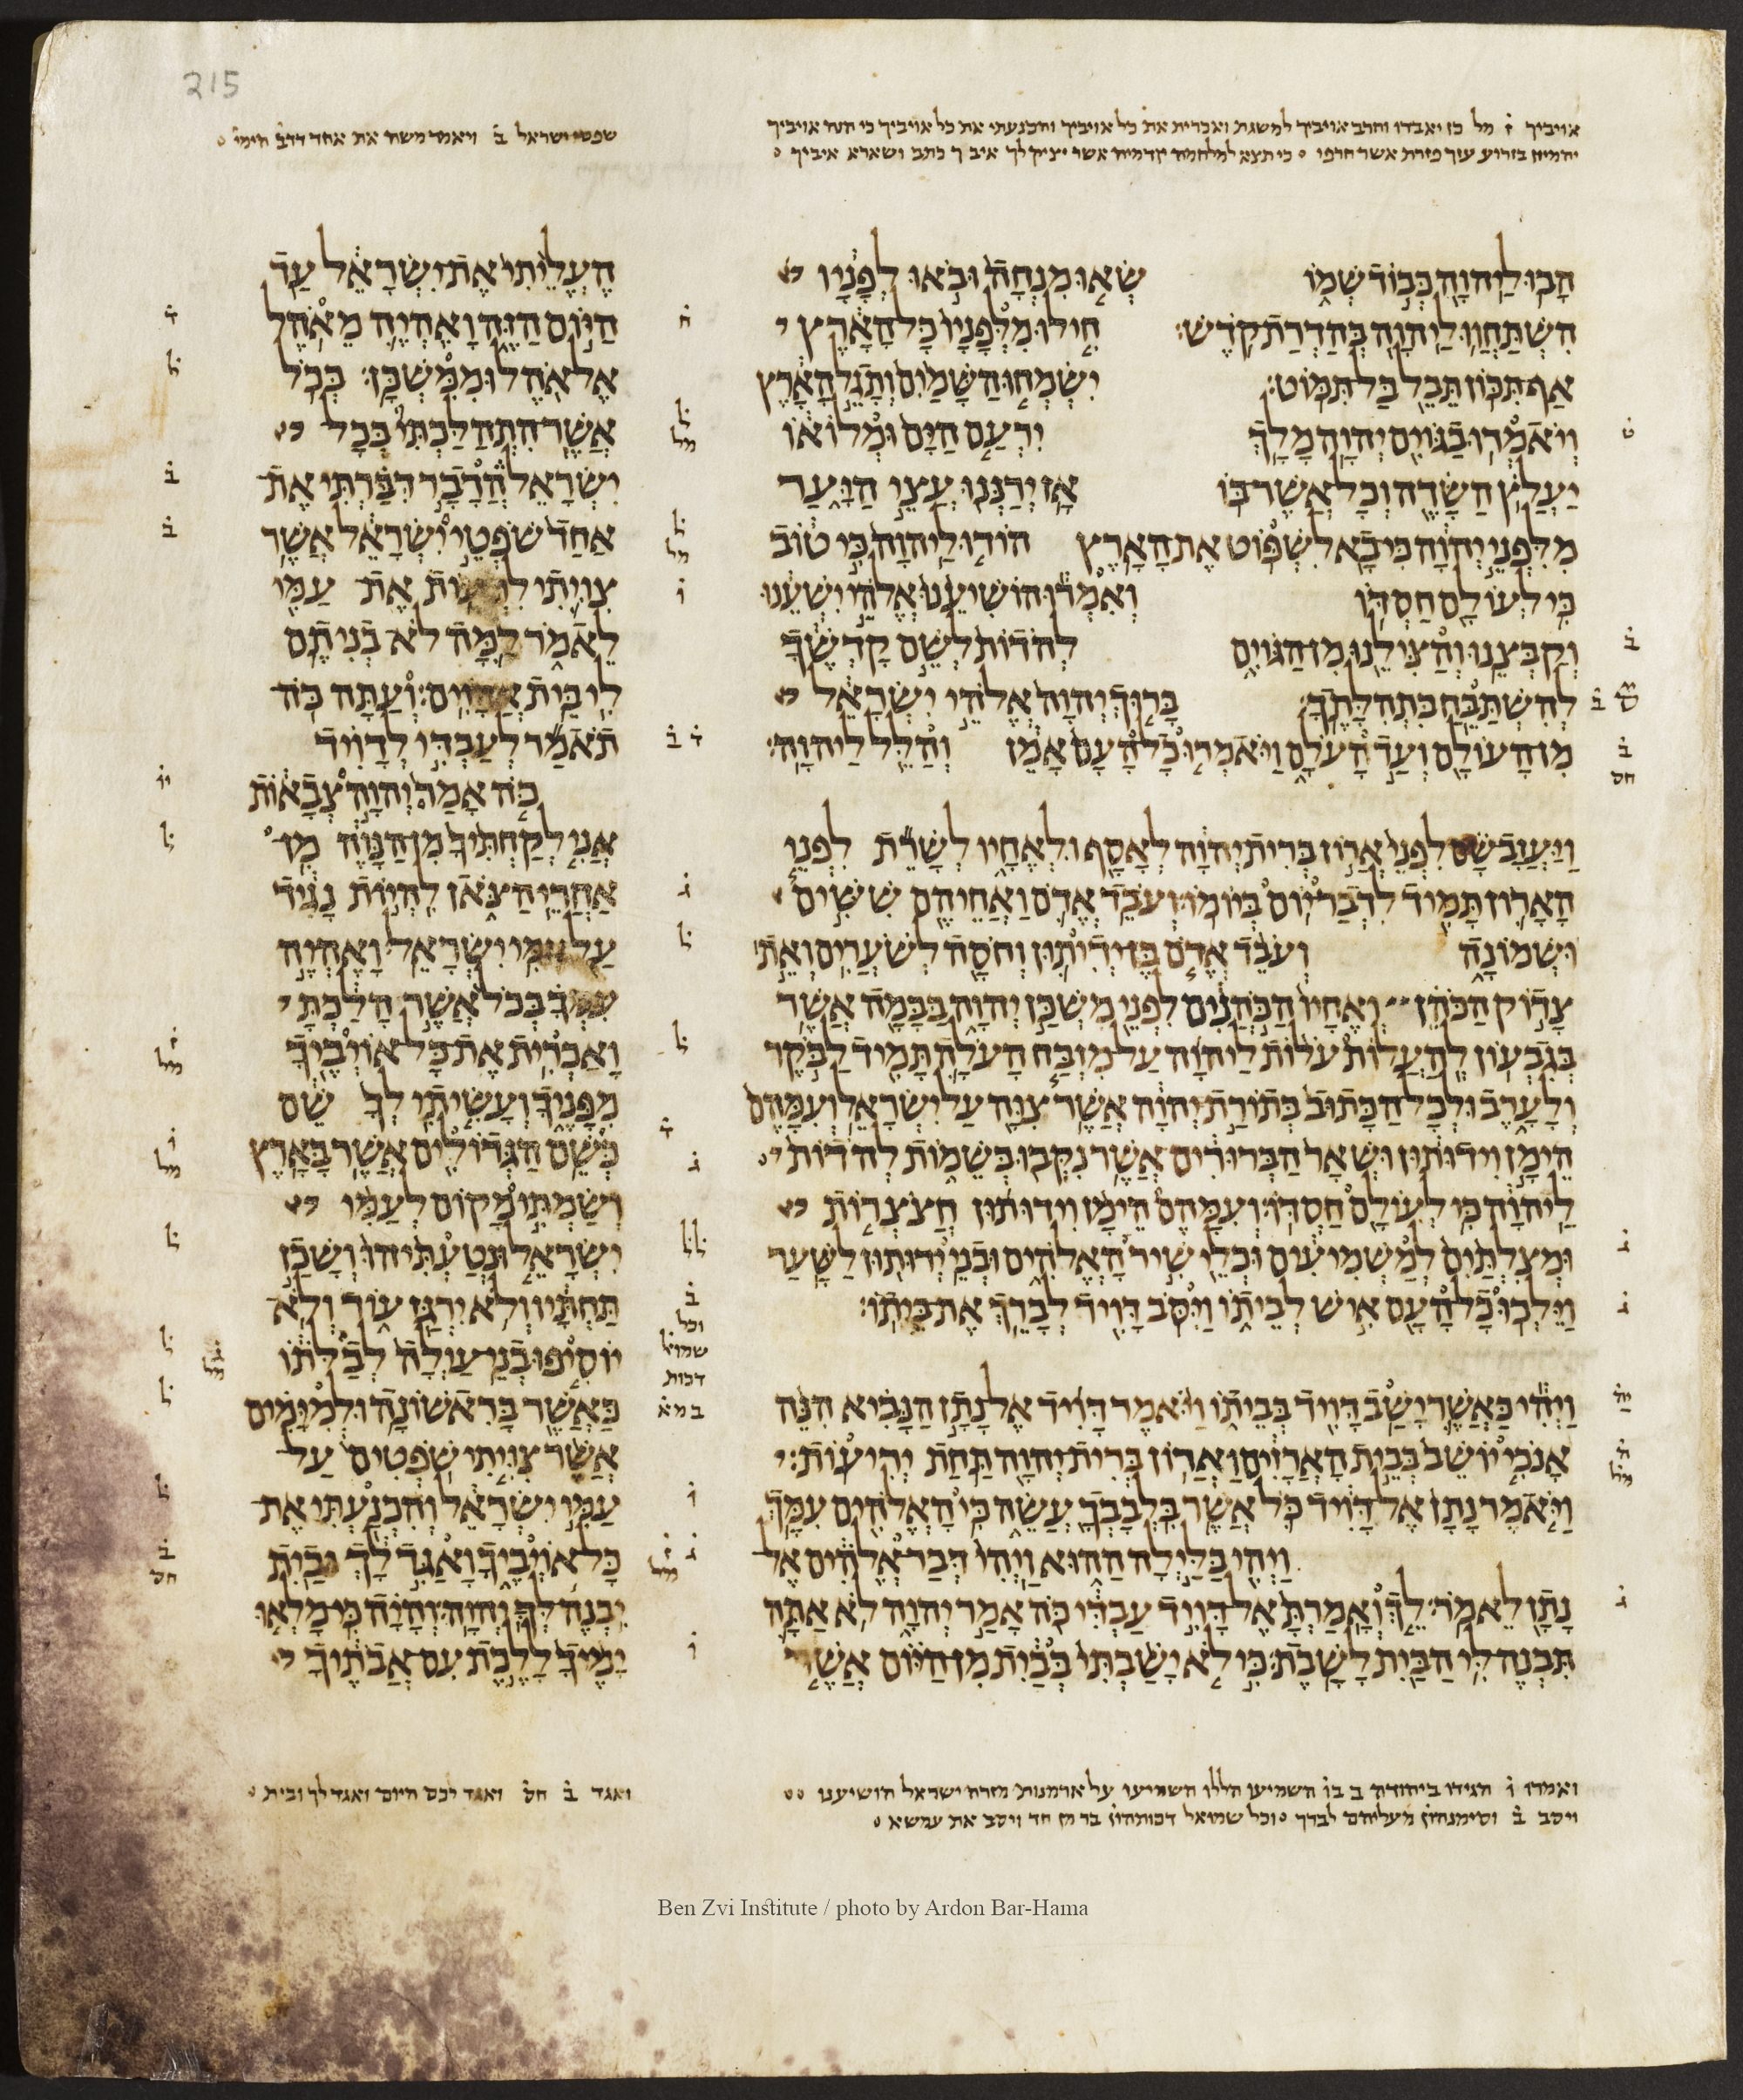 215
אויביך ז̇ מל כן יאבדו וחרב אויביך למשגת ואכרית את כל אויביך והכנעתי את כל אויביך כי הנה אויביך
שפטי ישראל ב̇
הבו ליהוה כבוד שמו שאו מנחה ובאו לפניו
השתחוו ליהוה בהדרת קדש׃ חילו מלפניו כל הארץ
אף תכון תבל בל תמוט׃ ישמחו השמים ותגל הארץ
ויאמרו בגוים יהוה מלך ירעם הים ומלואו
יעלץ השדה וכל אשר בו אז ירננו עצי היער
מלפני יהוה כי בא לשפוט את הארץ הודו ליהוה כי טוב
כי לעולם חסדו ואמרו הושיענו אלהי ישענו
וקבצנו והצילנו מן הגוים להדות לשם קדשך
להשתבח בתהלתך׃ ברוך יהוה אלהי ישראל
מן העולם ועד העלם ויאמרו כל העם אמן והלל ליהוה׃
ויעזב שם לפני ארון ברית יהוה לאסף ולאחיו לשרת לפני
הארון תמיד לדבר יום ביומו׃ ועבד אדם ואחיהם ששים
ושמונה ועבד אדם בן ידיתון וחסה לשערים ואת
צדוק הכהן ואחיו הכהנים לפני משכן יהוה בבמה אשר
בגבעון להעלות עלות ליהוה על מזבח העלה תמיד לבקר
ולערב ולכל הכתוב בתורת יהוה אשר צוה על ישראל ועמהם
הימן וידותון ושאר הברורים אשר נקבו בשמות להדות
ליהוה כי לעולם חסדו׃ ועמהם הימן וידותון חצצרות
ומצלתים למשמיעים וכלי שיר האלהים ובני ידותון לשער
וילכו כל העם איש לביתו ויסב דויד לברך את ביתו׃
ויהי כאשר ישב דויד בביתו ויאמר דויד אל נתן הנביא הנה
אנכי יושב בבית הארזים וארון ברית יהוה תחת יריעות׃
ויאמר נתן אל דויד כל אשר בלבבך עשה כי האלהים עמך
ויהי בלילה ההוא ויהי דבר אלהים אל
נתן לאמר׃ לך ואמרת אל דויד עבדי כה אמר יהוה לא אתה
תבנה לי הבית לשבת׃ כי לא ישבתי בבית מן היום אשר
העליתי את ישראל עד
היום הזה ואהיה מאהל
אל אהל וממשכן׃ בכל
אשר התהלכתי בכל
ישראל הדבר דברתי את
אחד שפטי ישראל אשר
צויתי לרעות את עמי
לאמר למה לא בניתם
לי בית ארזים׃ ועתה כה
תאמר לעבדי לדויד
כה אמר יהוה צבאות
אני לקחתיך מן הנוה מן
אחרי הצאן להיות נגיד
על עמי ישראל׃ ואהיה
עמך בכל אשר הלכת
ואכרית את כל אויביך
מפניך ועשיתי לך שם
כשם הגדולים אשר בארץ
ושמתי מקום לעמי
ישראל ונטעתיהו ושכן
תחתיו ולא ירגז עוד ולא
יוסיפו בני עולה לבלתו
כאשר בראשונה׃ ולמימים
אשר צויתי שפטים על
עמי ישראל והכנעתי את
כל אויביך ואגד לך ובית
יבנה לך יהוה׃ והיה כי מלאו
ימיך ללכת עם אבתיך
ואמרו ו̇ הגידו ביהודה
ואגד ב̇ חס̇ ואגד לכם היום ואגד לך ובית
Ben Zvi Institute / photo by Ardon Bar-Hama